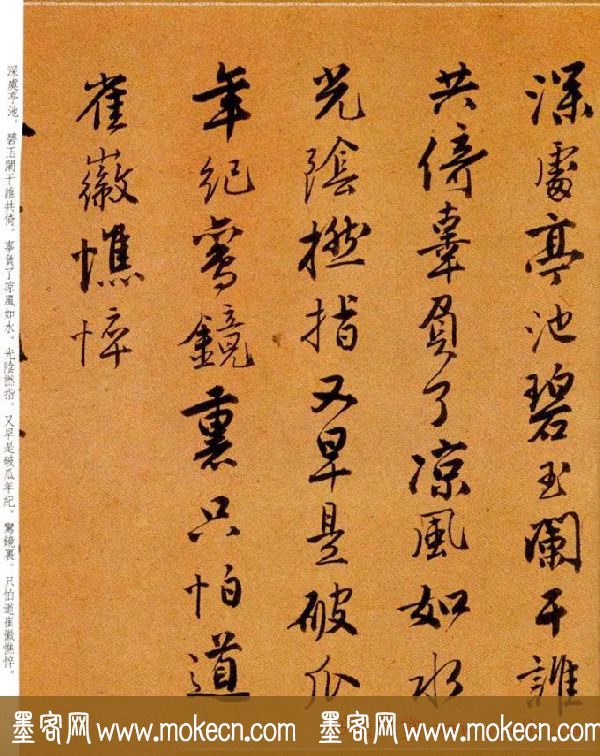 深處亭池碧玉闌干誰
共倚辜負了凉風如水
光陰撚指又早是破瓜
年紀鸞鏡裏只怕道
崔徽憔悴
深處亭池，碧玉闌干誰共倚。辜負了凉風如水。光陰撚指。又早是破瓜年紀。鸞鏡裏，只怕道崔徽憔悴。
墨客网 www.mokecn.com 墨客网 www.mokecn.com